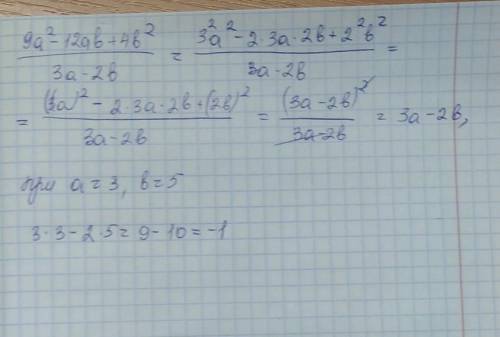 (9a² - 12ab + 4b²)/(3a - 2b) = (3²a² - 2·3a·2b + 2²b²)/(3a - 2b) =
= ((3a)² - 2·3a·2b + (2b)²)/(3a - 2b) = (3a - 2b)²/(3a - 2b) = 3a - 2b,
при a = 3, b = 5
3·3 - 2·5 = 9 - 10 = -1